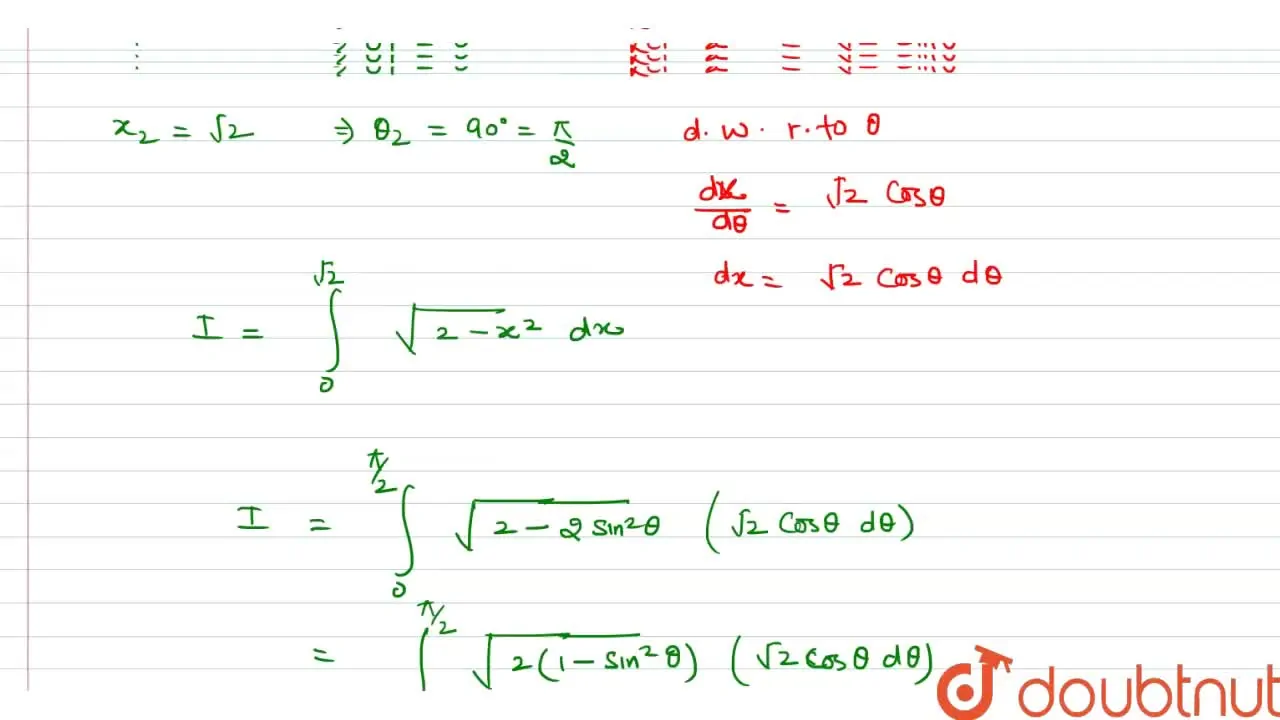 x₂ = √2 ⇒ θ₂ = 90° = π/2
d. w. r. to θ
dx/dθ = √2 Cosθ
dx = √2 Cosθ dθ
I = ∫₀^√2 √(2 − x²) dx
I = ∫₀^π/2 √(2 − 2 sin²θ) (√2 Cosθ dθ)
= ∫^π/2 √(2(1 − sin²θ)) (√2 Cosθ dθ)
doubtnut